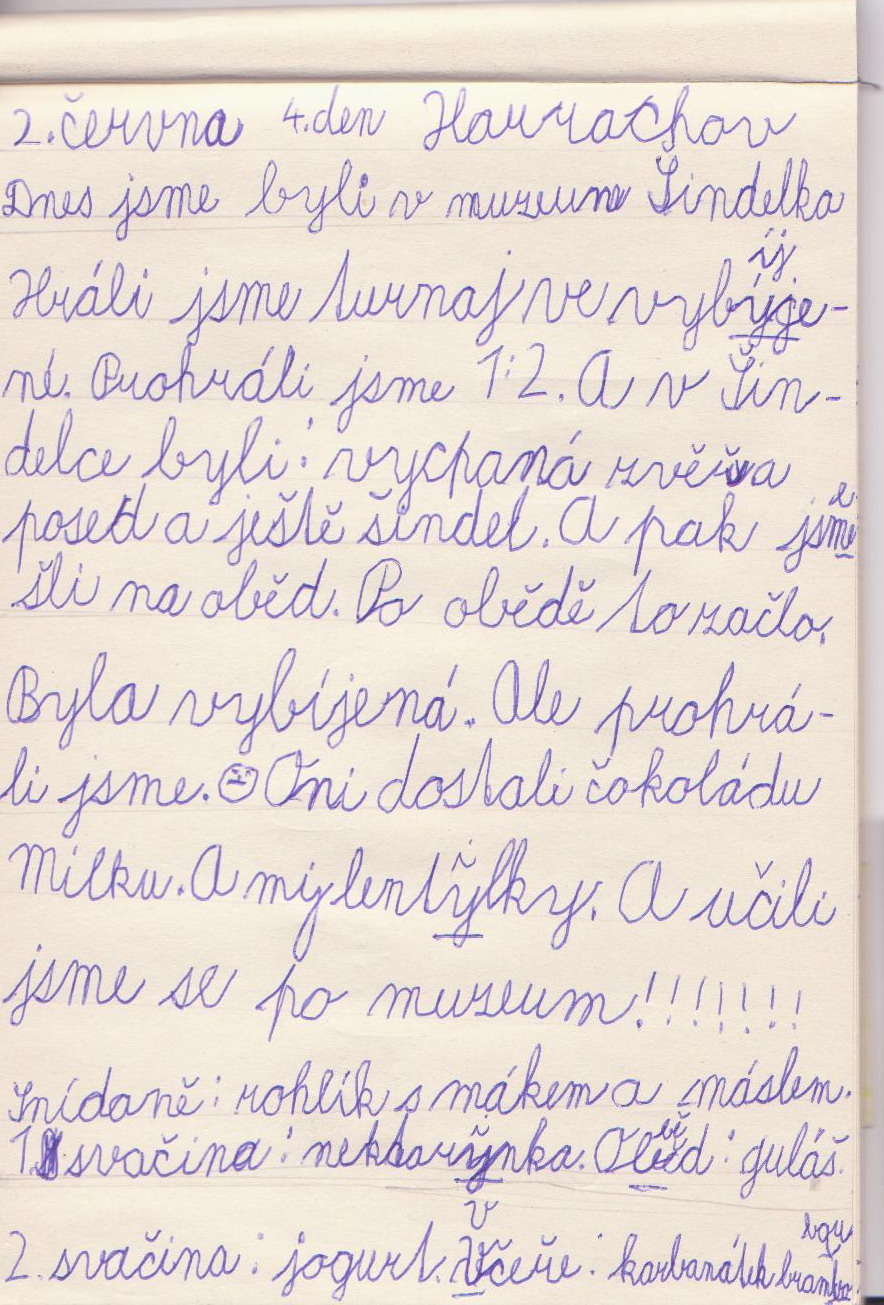 2. června 4. den Harrachov
Dnes jsme byli v muzeum Šindelka
íj
Hráli jsme turnaj ve vybýje-
né. Prohráli jsme 1:2. A v Šin-
delce byli: vycpaná zvěřva
e
posed a ještě šindel. A pak jsmě
šli na oběd. Po obědě to začlo.
Byla vybíjená. Ale prohrá-
li jsme. Oni dostali čokoládu
Milku. A my lentýlky. A učili
jsme se po muzeum!!!!!!!
Snídaně: rohlík s mákem a máslem.
1. svačina: nektarýnka. Oběd: guláš.
v
2. svačina: jogurt. Včeře: karbanátek